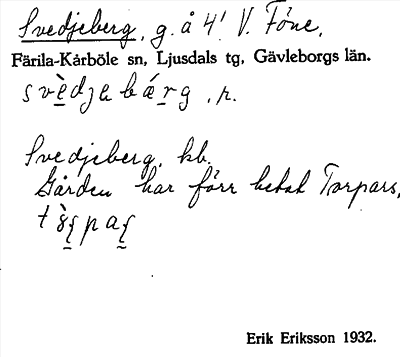 Svedjeberg, g. å 4¹ V. Föne,
Färila-Kårböle sn, Ljusdals tg, Gävleborgs län.
Svedjeberg, kb.
Gården har förr hetat Torpars,
Erik Eriksson 1932.